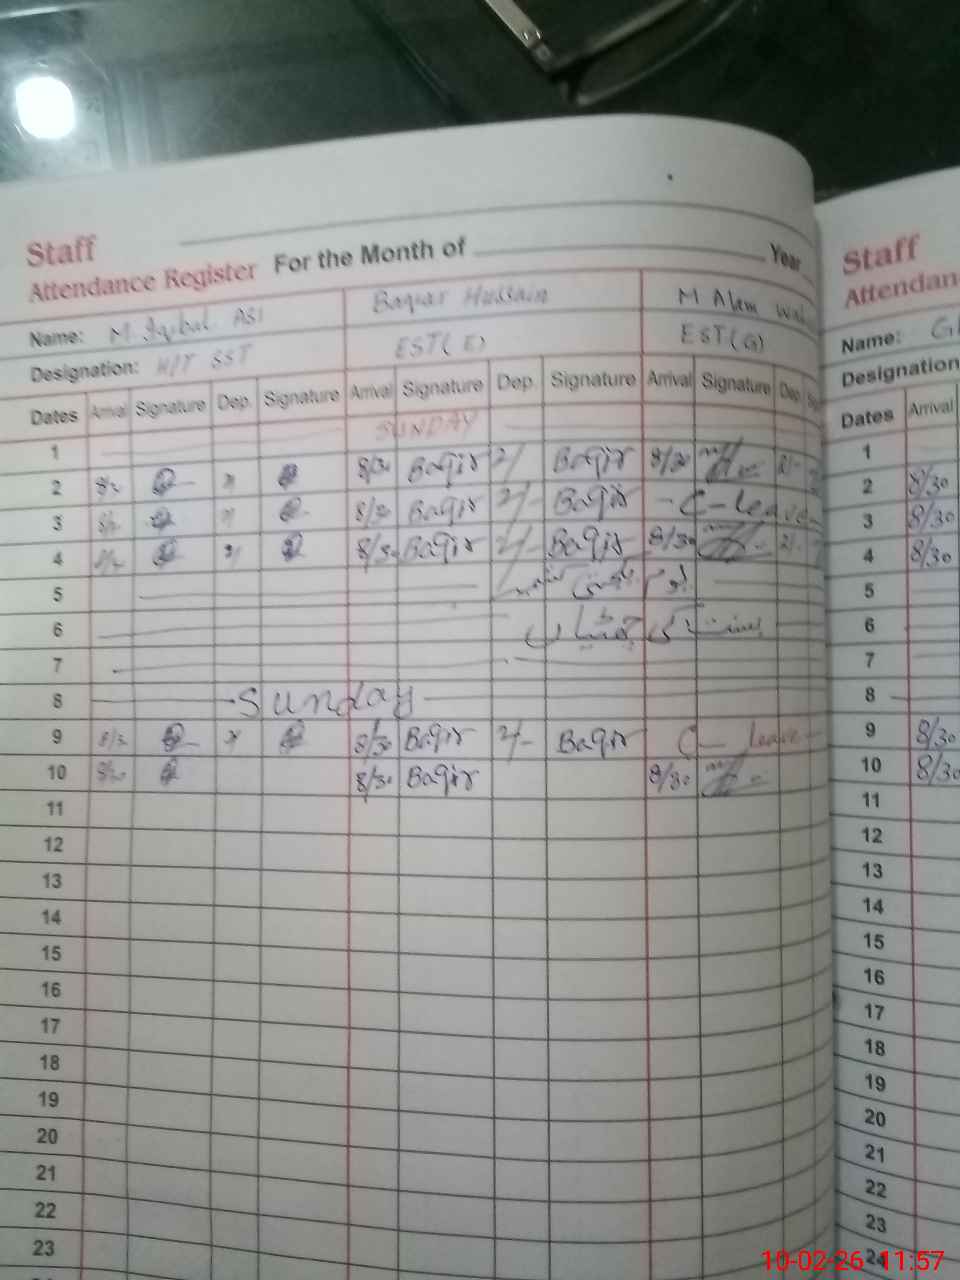 Staff Attendance Register For the Month of Year
Name: M Iqbal Baqar Hussain M Alam
Designation: H/T SST EST(E) EST(G)
Dates Arrival Signature Dep. Signature Arrival Signature Dep. Signature Arrival Signature Dep.
1 SUNDAY
2 8/30 Baqir 2/- Baqir 8/30 2/-
3 8/30 Baqir 2/- Baqir - C-leave-
4 8/30 Baqir 2/- Baqir 8/30 2/-
5 یوم یکجہتی کشمیر
6 بسنت کی چھٹیاں
7
8 Sunday
9 8/30 Baqir 2/- Baqir C- leave-
10 8/30 Baqir 8/30
11
12
13
14
15
16
17
18
19
20
21
22
23
Staff
Attendan
Name:
Designation
Dates Arrival
1
2 8/30
3 8/30
4 8/30
5
6
7
8
9 8/30
10 8/30
11
12
13
14
15
16
17
18
19
20
21
22
23
24
10-02-26 11:57